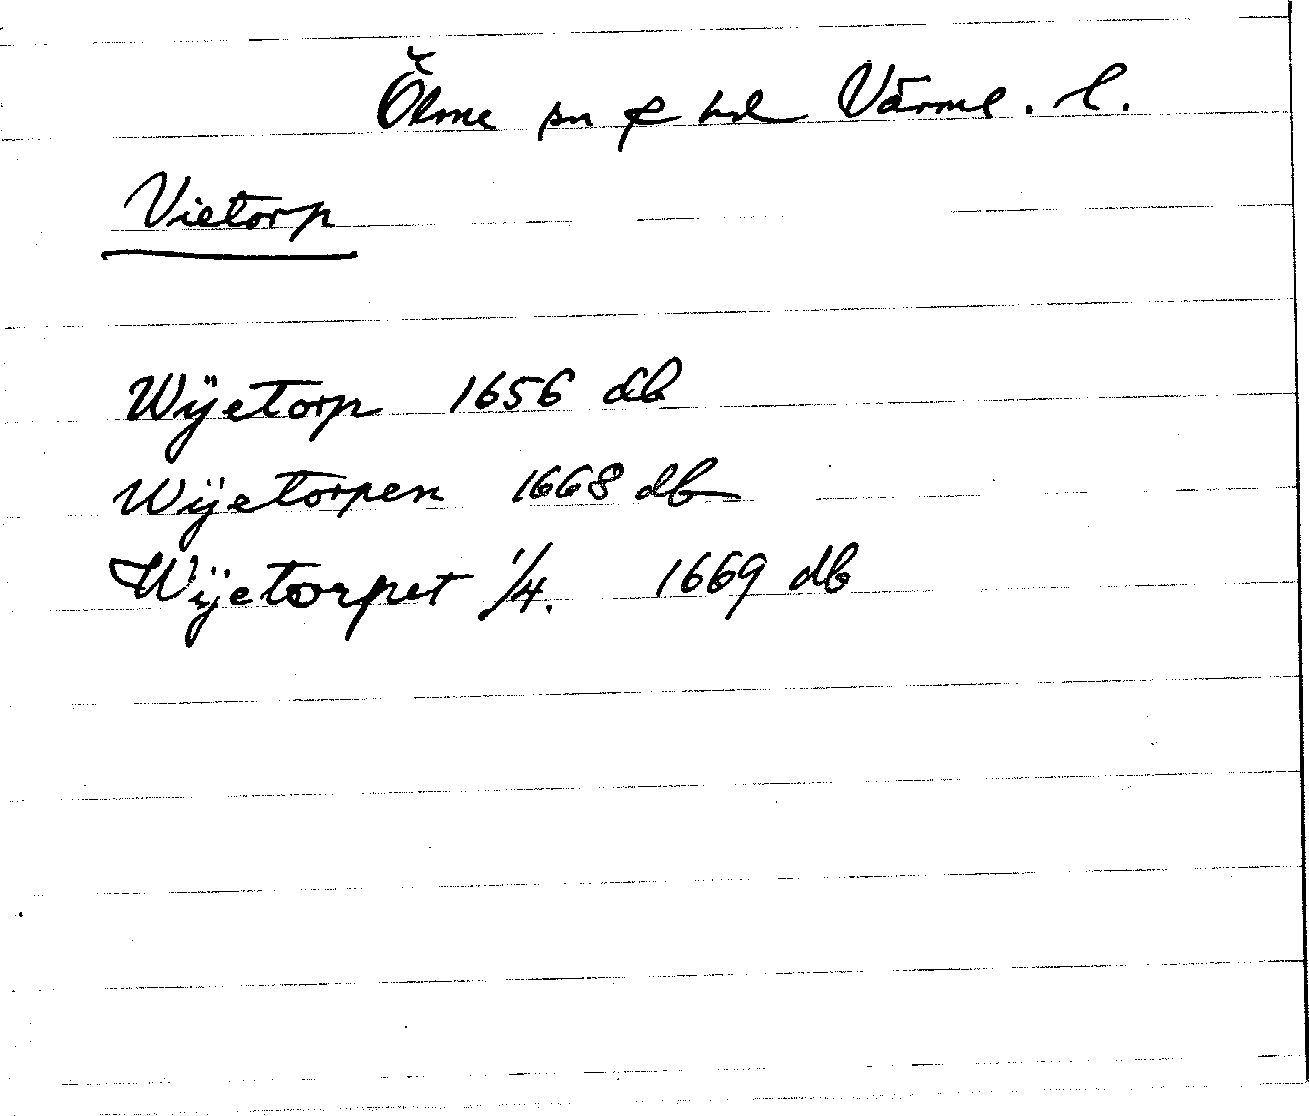 Ölme sn o hd Värml. l.
Vietorp
Wÿetorp 1656 db
Wÿetorpen 1668 db
Wÿetorpet 1/4. 1669 db